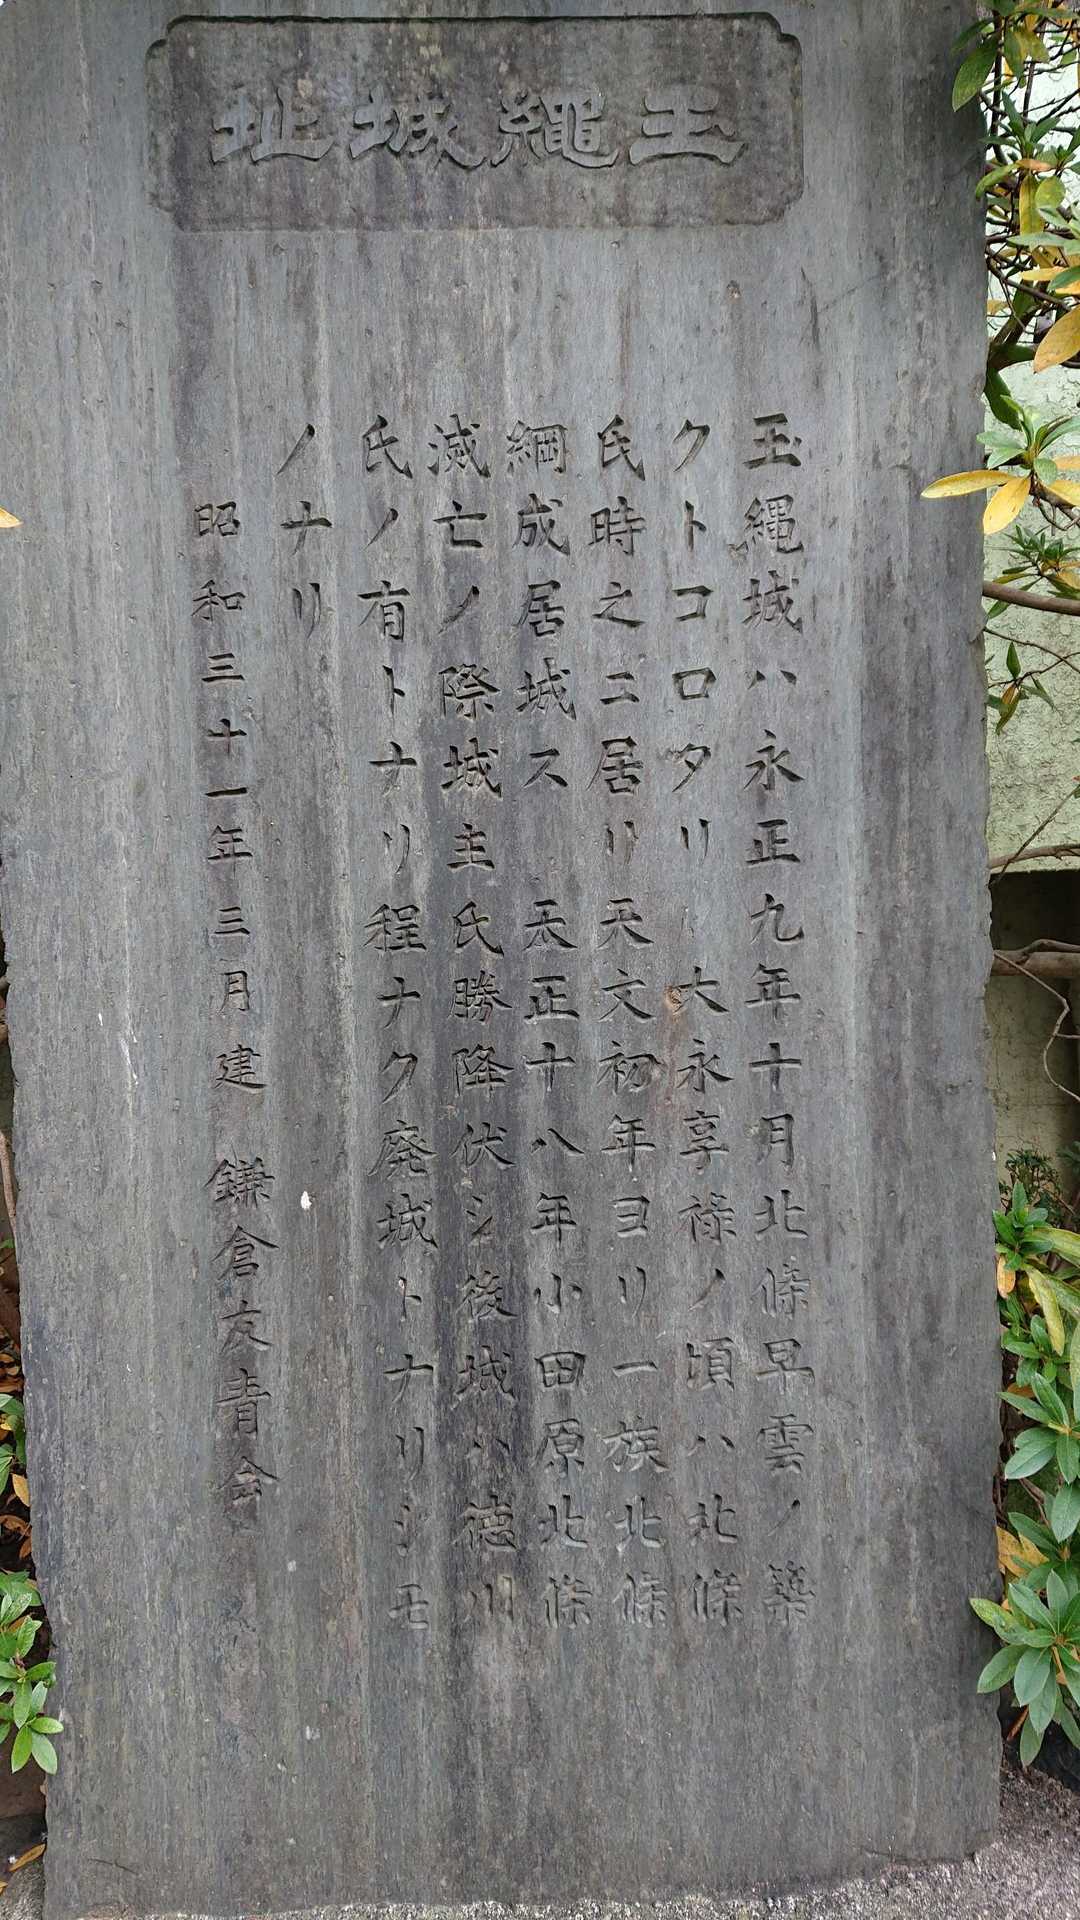 玉繩城址
玉縄城ハ永正九年十月北條早雲ノ築
クトコロタリ 大永享祿ノ頃ハ北條
氏時之ニ居リ天文初年ヨリ一族北條
綱成居城ス 天正十八年小田原北條
滅亡ノ際城主氏勝降伏シ後城ハ徳川
氏ノ有トナリ程ナク廃城トナリシモ
ノナリ
昭和三十一年三月建 鎌倉友青会